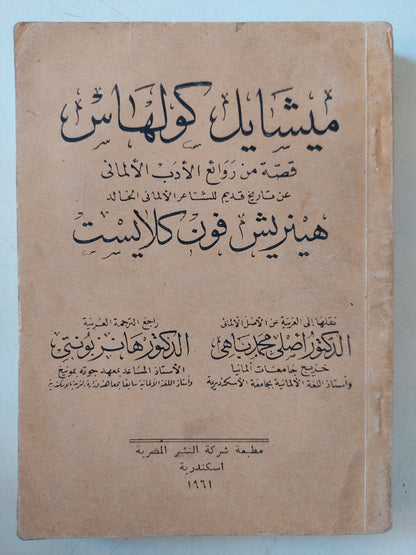 ميشايل كولهاس
قصة من روائع الأدب الألمانى
عن تاريخ قديم للشاعر الألمانى الخالد
هينريش فون كلايست
نقلها إلى العربية عن الأصل الألمانى
الدكتور أصلى محمد رباهى
خريج جامعات ألمانيا
وأستاذ اللغة الألمانية بجامعة الأسكندرية
راجع الترجمة العربية
الدكتور هانز بونتى
الأستاذ المساعد بمعهد جوته بميونيخ
وأستاذ اللغة الألمانية سابقا بمعاهد وزارة التربية بالإسكندرية
مطبعة شركة النشير المصرية
اسكندرية
١٩٦١